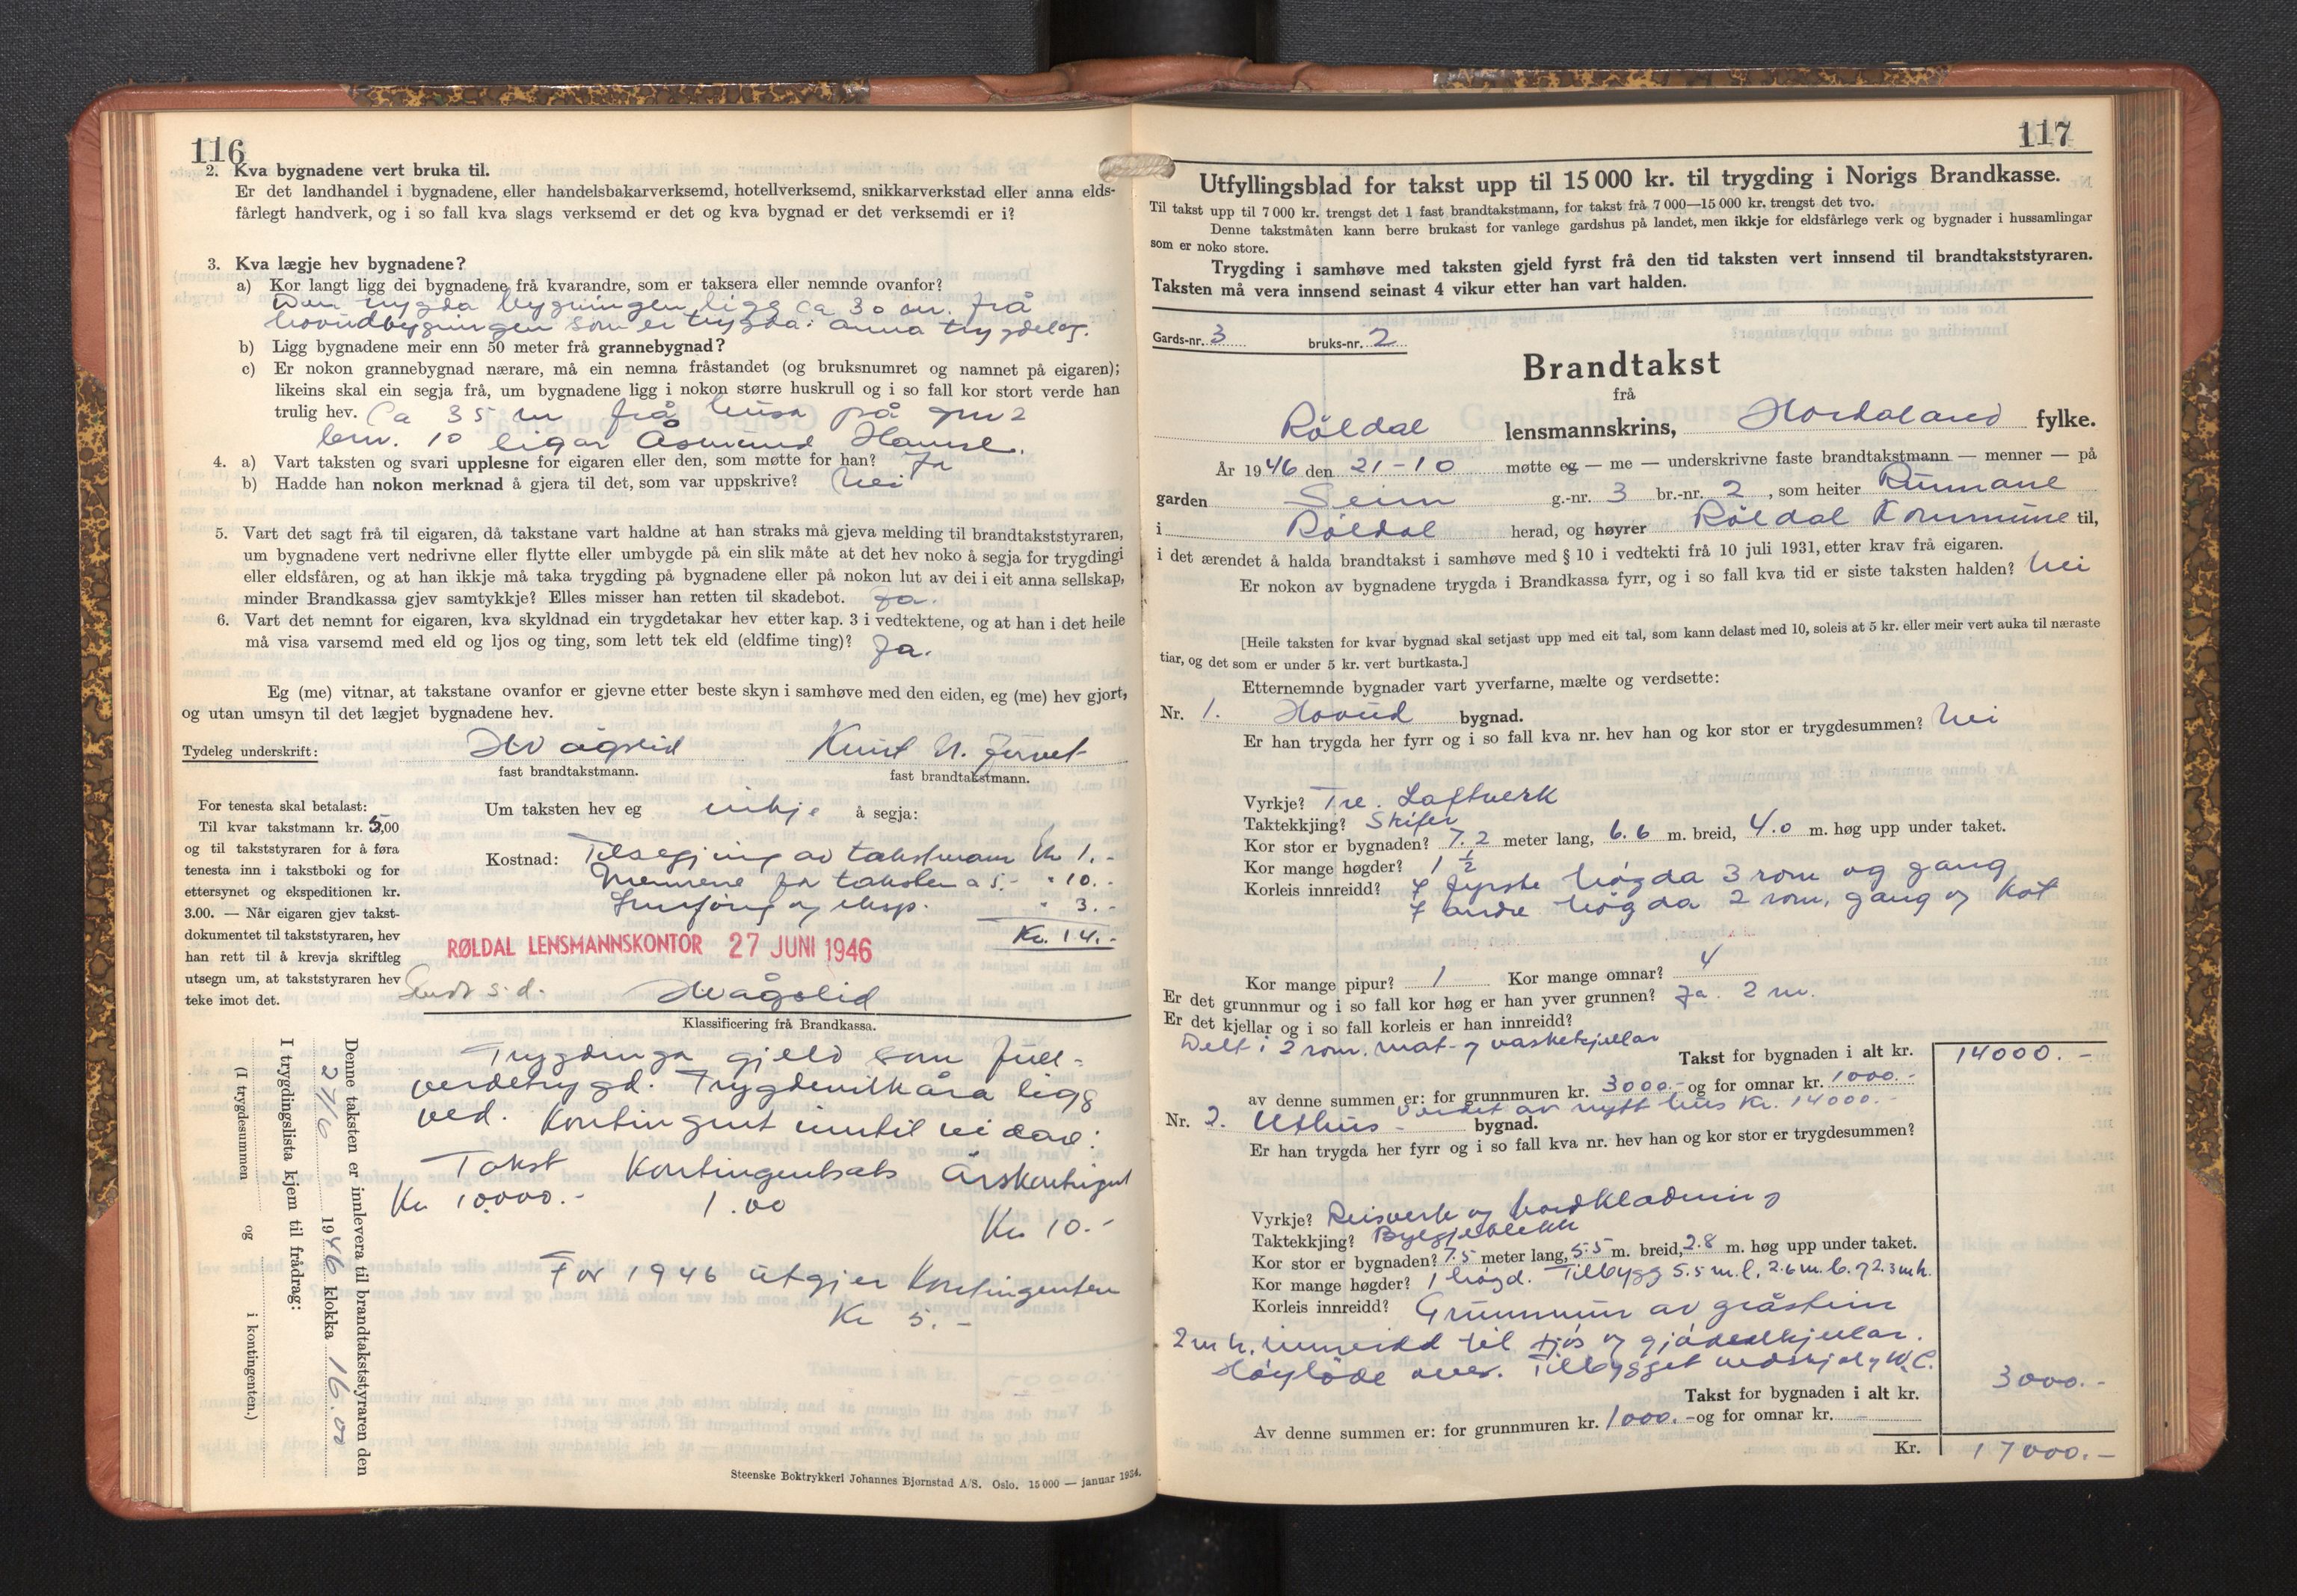 116
2. Kva bygnadene vert bruka til.
Er det landhandel i bygnadene, eller handelsbakarverksemd, hotellverksemd, snikkarverkstad eller anna elds-
fårlegt handverk, og i so fall kva slags verksemd er det og kva bygnad er det verksemdi er i?
3. Kva lægje hev bygnadene?
a) Kor langt ligg dei bygnadene frå kvarandre, som er taksera eller nemnde ovanfor?
Den trygda bygningen ligg ca 30 m. frå
hovudbygningen som er trygda i anna trygdelag.
b) Ligg bygnadene meir enn 50 meter frå grannebygnad?
c) Er nokon grannebygnad nærare, må ein nemna fråstandet (og bruksnumret og namnet på eigaren);
likeins skal ein segja frå, um bygnadene ligg i nokon større huskrull og i so fall kor stort verde han
trulig hev. Ca 35 m frå husa på gnr 2
bnr. 10 eigar Åsmund Hamre.
4. a) Vart taksten og svari upplesne for eigaren eller den, som møtte for han? Ja
b) Hadde han nokon merknad å gjera til det, som var uppskrive? Nei
5. Vart det sagt frå til eigaren, då takstane vart haldne at han straks må gjeva melding til brandtakststyraren,
um bygnadene vert nedrivne eller flytte eller umbygde på ein slik måte at det hev noko å segja for trygdingi
eller eldsfåren, og at han ikkje må taka trygding på bygnadene eller på nokon lut av dei i eit anna sellskap,
minder Brandkassa gjev samtykkje? Elles misser han retten til skadebot. Ja.
6. Vart det nemnt for eigaren, kva skyldnad ein trygdetakar hev etter kap. 3 i vedtektene, og at han i det heile
må visa varsemd med eld og ljos og ting, som lett tek eld (eldfime ting)? Ja.
Eg (me) vitnar, at takstane ovanfor er gjevne etter beste skyn i samhøve med den eiden, eg (me) hev gjort,
og utan umsyn til det lægjet bygnadene hev.
Tydeleg underskrift: HVågslid Knut N. Juvet
fast brandtakstmann. fast brandtakstmann.
For tenesta skal betalast:
Til kvar takstmann kr. 5,00
og til takststyraren for å føra
tenesta inn i takstboki og for
ettersynet og ekspeditionen kr.
3.00. — Når eigaren gjev takst-
dokumentet til takststyraren, hev
han rett til å krevja skriftleg
utsegn um, at takststyraren hev
teke imot det.
Um taksten hev eg inkje å segja:
Kostnad: Tilsegjing av takstmenn Kr 1.-
Mennene for taksten a 5.- " 10.-
Innføring og eksp. " 3.-
Kr. 14.-
RØLDAL LENSMANNSKONTOR 27 JUNI 1946
Sendt s.d. HVågslid
Klassificering frå Brandkassa.
Trygdinga gjeld som full-
verdetrygd. Trygdevilkåra ligg
ved. Kontingent inntil vidare:
Takst Kontingentsats Årskontingent
Kr 10.000.- 1.00 Kr 10.-
For 1946 utgjer Kontingenten
Kr 5.-
Denne taksten er innlevera til brandtakststyraren den
27/6 1946 klokka 16.00
I trygdingslista kjem til frådrag:
(I trygdesummen og i kontingenten.)
Steenske Boktrykkeri Johannes Bjørnstad A/S. Oslo. 15 000 — januar 1934.
117
Utfyllingsblad for takst upp til 15 000 kr. til trygding i Norigs Brandkasse.
Til takst upp til 7 000 kr. trengst det 1 fast brandtakstmann, for takst frå 7 000—15 000 kr. trengst det tvo.
Denne takstmåten kann berre brukast for vanlege gardshus på landet, men ikkje for eldsfårlege verk og bygnader i hussamlingar
som er noko store.
Trygding i samhøve med taksten gjeld fyrst frå den tid taksten vert innsend til brandtakststyraren.
Taksten må vera innsend seinast 4 vikur etter han vart halden.
Gards-nr. 3 bruks-nr. 2
Brandtakst
frå
Røldal lensmannskrins, Hordaland fylke.
År 1946 den 21-10 møtte eg — me — underskrivne faste brandtakstmann — menner — på
garden Seim g.-nr. 3 br.-nr. 2, som heiter
i Røldal herad, og høyrer Røldal Kommune til,
i det ærendet å halda brandtakst i samhøve med § 10 i vedtekti frå 10 juli 1931, etter krav frå eigaren.
Er nokon av bygnadene trygda i Brandkassa fyrr, og i so fall kva tid er siste taksten halden? Nei
[Heile taksten for kvar bygnad skal setjast upp med eit tal, som kann delast med 10, soleis at 5 kr. eller meir vert auka til næraste
tiar, og det som er under 5 kr. vert burtkasta.]
Etternemnde bygnader vart yverfarne, mælte og verdsette:
Nr. 1. Hovud bygnad.
Er han trygda her fyrr og i so fall kva nr. hev han og kor stor er trygdesummen? Nei
Vyrkje? Tre. Laftverk
Taktekkjing? Skifer
Kor stor er bygnaden? 7.2 meter lang, 6.6 m. breid, 4.0 m. høg upp under taket.
Kor mange høgder? 1 1/2
Korleis innreidd? I fyrste høgda 3 rom og gang
I andre høgda 2 rom, gang og kot
Kor mange pipur? 1 Kor mange omnar? 4
Er det grunnmur og i so fall kor høg er han yver grunnen? Ja. 2 m.
Er det kjellar og i so fall korleis er han innreidd?
Delt i 2 rom. mat- og vaskekjellar
Takst for bygnaden i alt kr. 14000.-
av denne summen er: for grunnmuren kr. 3000.- og for omnar kr. 1000.-
Verdet av nytt hus Kr. 14000.-
Nr. 2. Uthus- bygnad.
Er han trygda her fyrr og i so fall kva nr. hev han og kor stor er trygdesummen?
Vyrkje? Reisverk og bordkledning
Taktekkjing? Bylgjeblekk
Kor stor er bygnaden? 7.5 meter lang, 5.5 m. breid, 2.8 m. høg upp under taket.
Kor mange høgder? 1 høgd. Tilbygg 5.5 m.l. 2.6 m.b. og 2.3 m h.
Korleis innreidd? Grunnmur av gråstein
2 m h. innreidd til fjøs og gjødselkjellar.
Høyløde over. Tilbygget vedskjol og W.C.
Takst for bygnaden i alt kr. 3000.-
Av denne summen er: for grunnmuren kr. 1000.- og for omnar kr. -
Kr. 17000.-